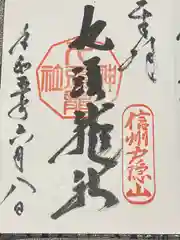 九頭龍社
信州戸隠山
令和五年六月八日